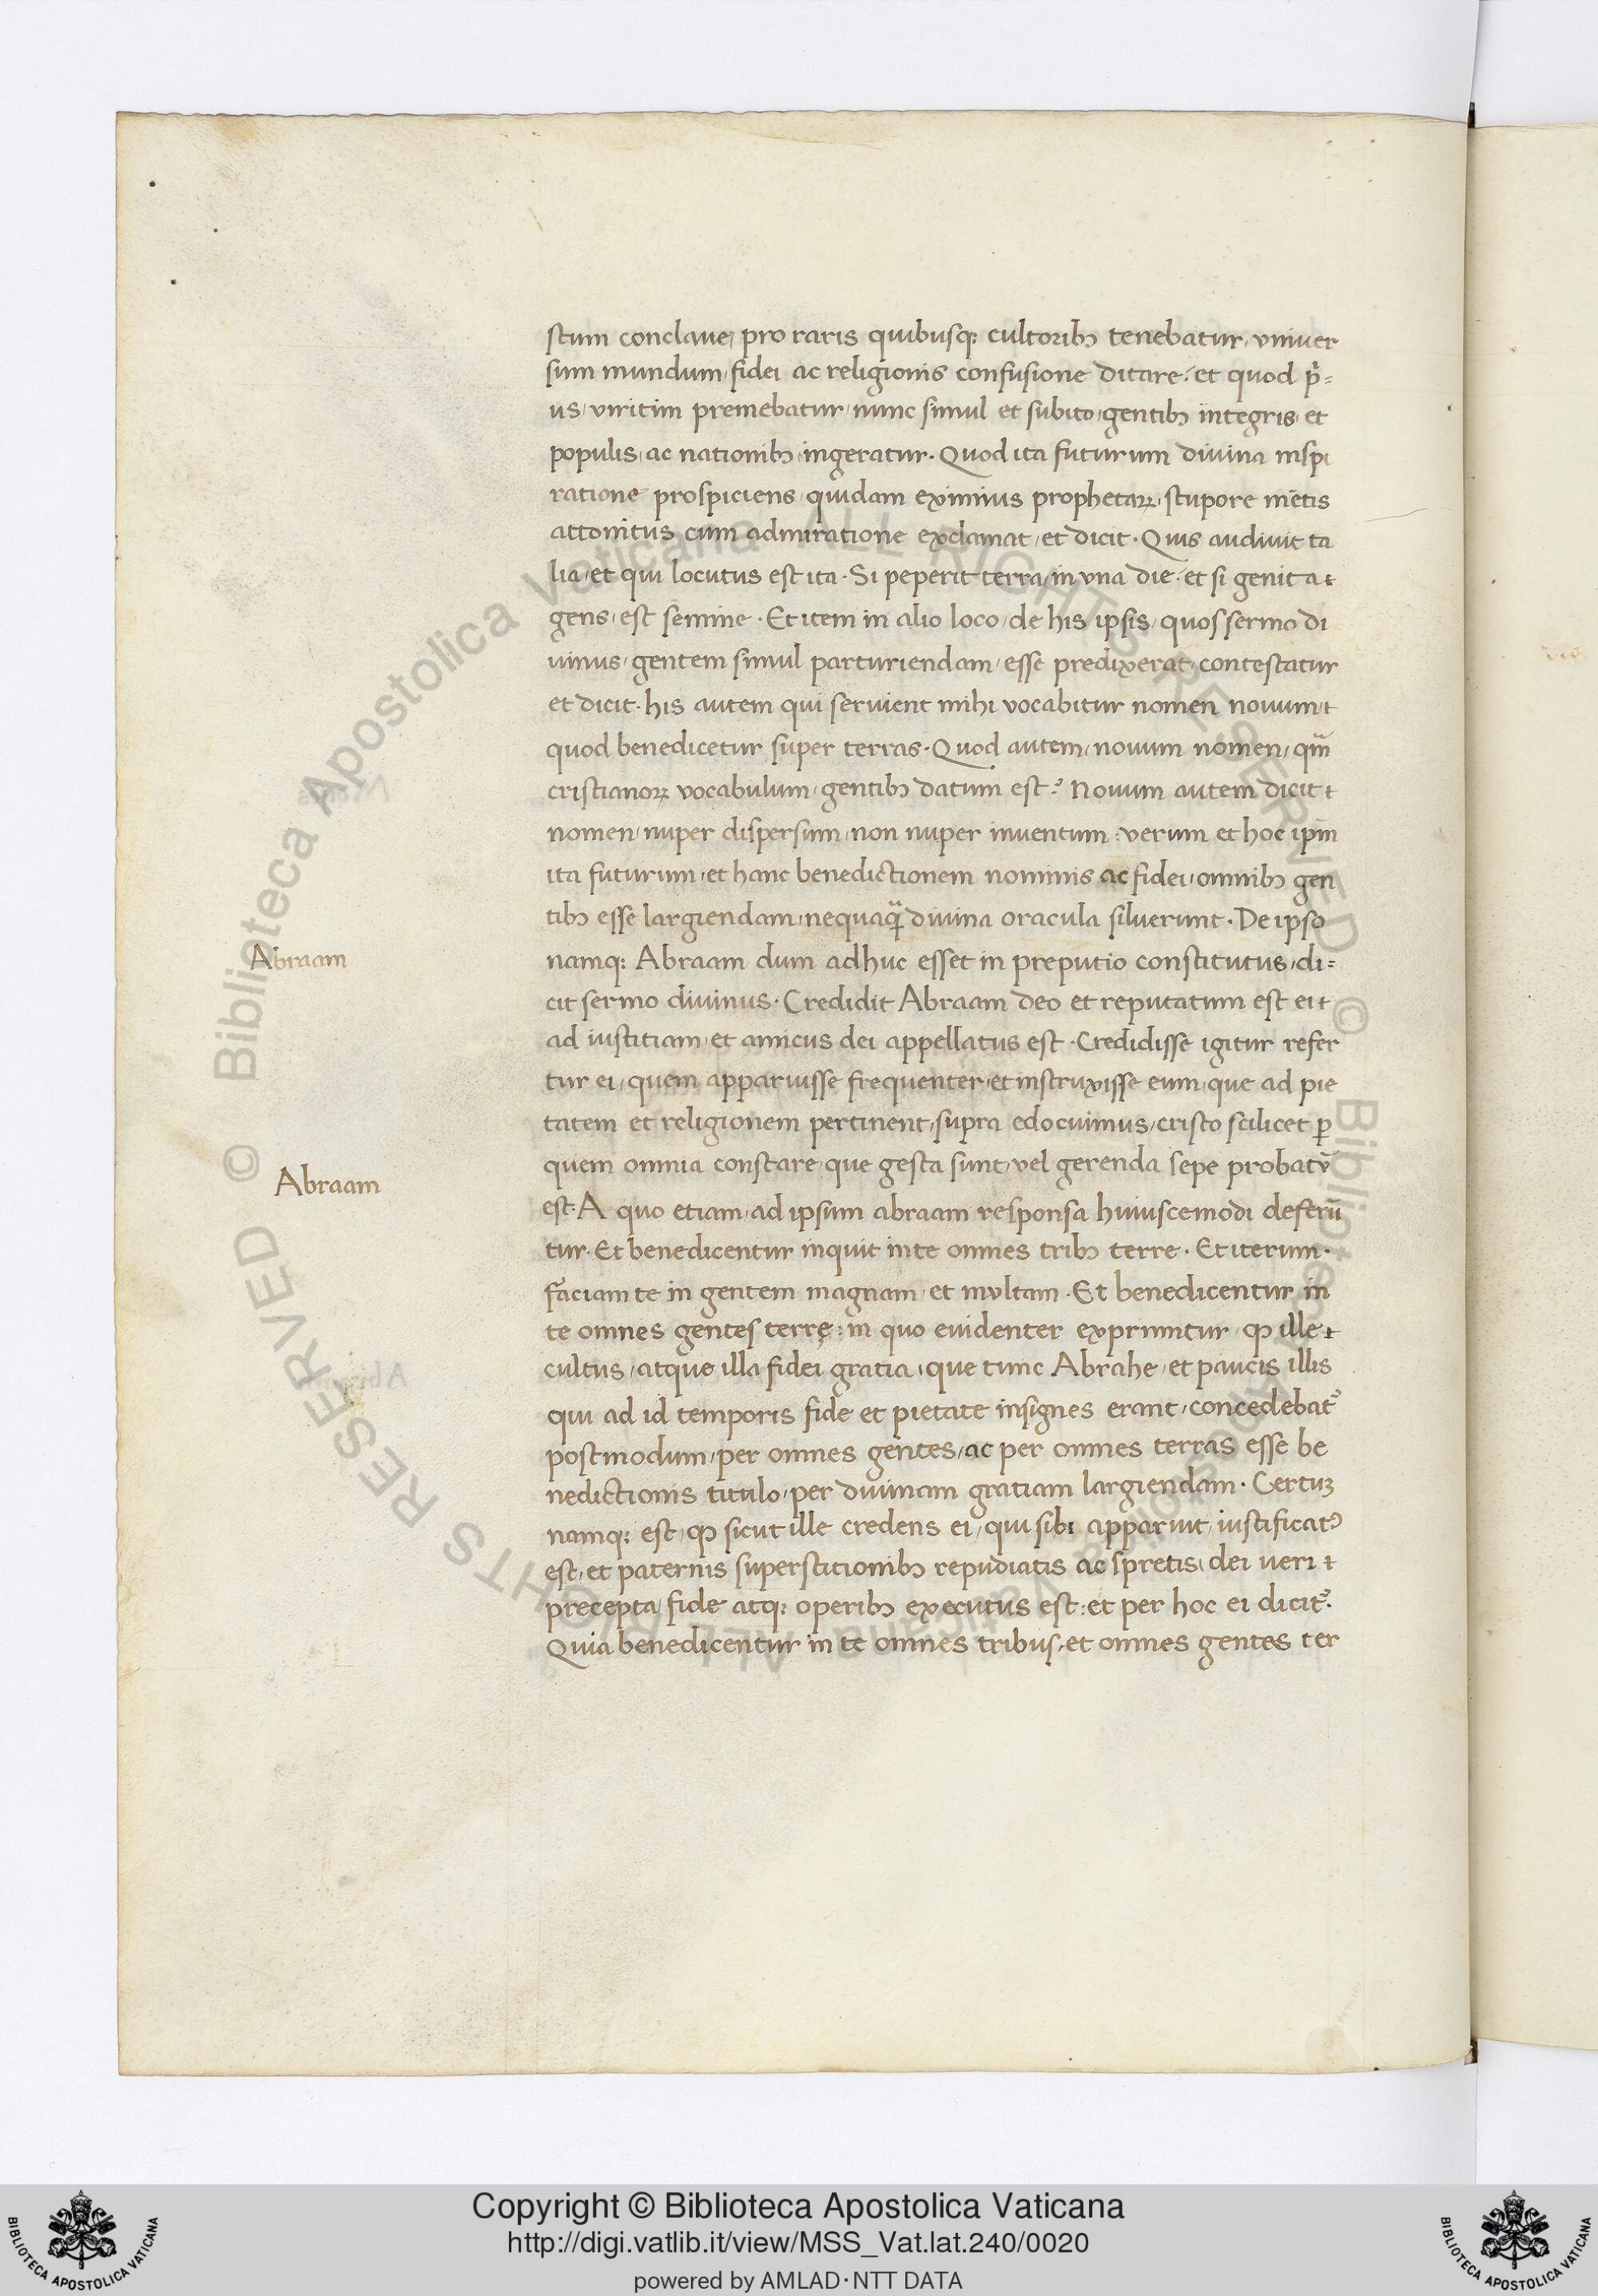 stum conclaue, pro raris quibusq: cultoribꝫ tenebatur, vniuer
sum mundum, fidei ac religionis confusione ditare: et quod p̓=
us, viritim premebatur, nunc simul et subito, gentibꝫ integris, et
populis, ac nationibꝫ, ingeratur. Quod ita futurum diuina inspi
ratione prospiciens, quidam eximius prophetaꝝ, stupore mētis
attonitus cum admiratione exclamat, et dicit. Quis audiuit ta
lia, et qui locutus est ita. Si peperit terra, in vna die: et si genita
gens, est semine. Et item in alio loco, de his ipsis, quos sermo di
uinus, gentem simul parturiendam, esse predixerat, contestatur
et dicit. his autem qui seruient mihi vocabitur nomen nouum
quod benedicetur super terras. Quod autem, nouum nomen, qm̃
cristianoꝝ vocabulum, gentibꝫ datum est? Nouum autem dicit
nomen, nuper dispersum, non nuper inuentum: verum et hoc ipm̄
ita futurum, et hanc benedictionem nominis ac fidei, omnibꝫ gen
tibꝫ esse largiendam, nequaq̃ diuina oracula siluerunt. De ipso
Abraam
namq: Abraam dum adhuc esset in preputio constitutus, di=
cit sermo diuinus. Credidit Abraam deo et reputatum est ei
ad iustitiam, et amicus dei appellatus est. Credidisse igitur refer
tur ei, quem apparuisse frequenter, et instruxisse eum, que ad pie
tatem et religionem pertinent, supra edocuimus, cristo scilicet ꝑ
quem omnia constare, que gesta sunt, vel gerenda sepe probatū
Abraam
est. A quo etiam, ad ipsum abraam responsa huiuscemodi deferū
tur. Et benedicentur inquit in te omnes tribꝫ terre. Et iterum.
faciam te in gentem magnam, et multam. Et benedicentur in
te omnes gentes terrę: in quo euidenter exprimitur, ꝙ ille
cultus, atque illa fidei gratia, que tunc Abrahe, et paucis illis
qui ad id temporis fide et pietate insignes erant, concedebat᷑
postmodum, per omnes gentes, ac per omnes terras esse be
nedictionis titulo, per diuinam gratiam largiendam. Certuꝫ
namq: est, ꝙ sicut ille credens ei, qui sibi apparuit, iustificatꝰ
est, et paternis superstitionibꝫ repudiatis ac spretis, dei ueri
precepta, fide atq: operibꝫ executus est: et per hoc ei dicit᷑.
Quia benedicentur in te omnes tribus, et omnes gentes ter
Copyright © Biblioteca Apostolica Vaticana
http://digi.vatlib.it/view/MSS_Vat.lat.240/0020
powered by AMLAD·NTT DATA
BIBLIOTECA APOSTOLICA VATICANA
BIBLIOTECA APOSTOLICA VATICANA
© Biblioteca Apostolica Vaticana ALL RIGHTS RESERVED
© Biblioteca Apostolica Vaticana ALL RIGHTS RESERVED